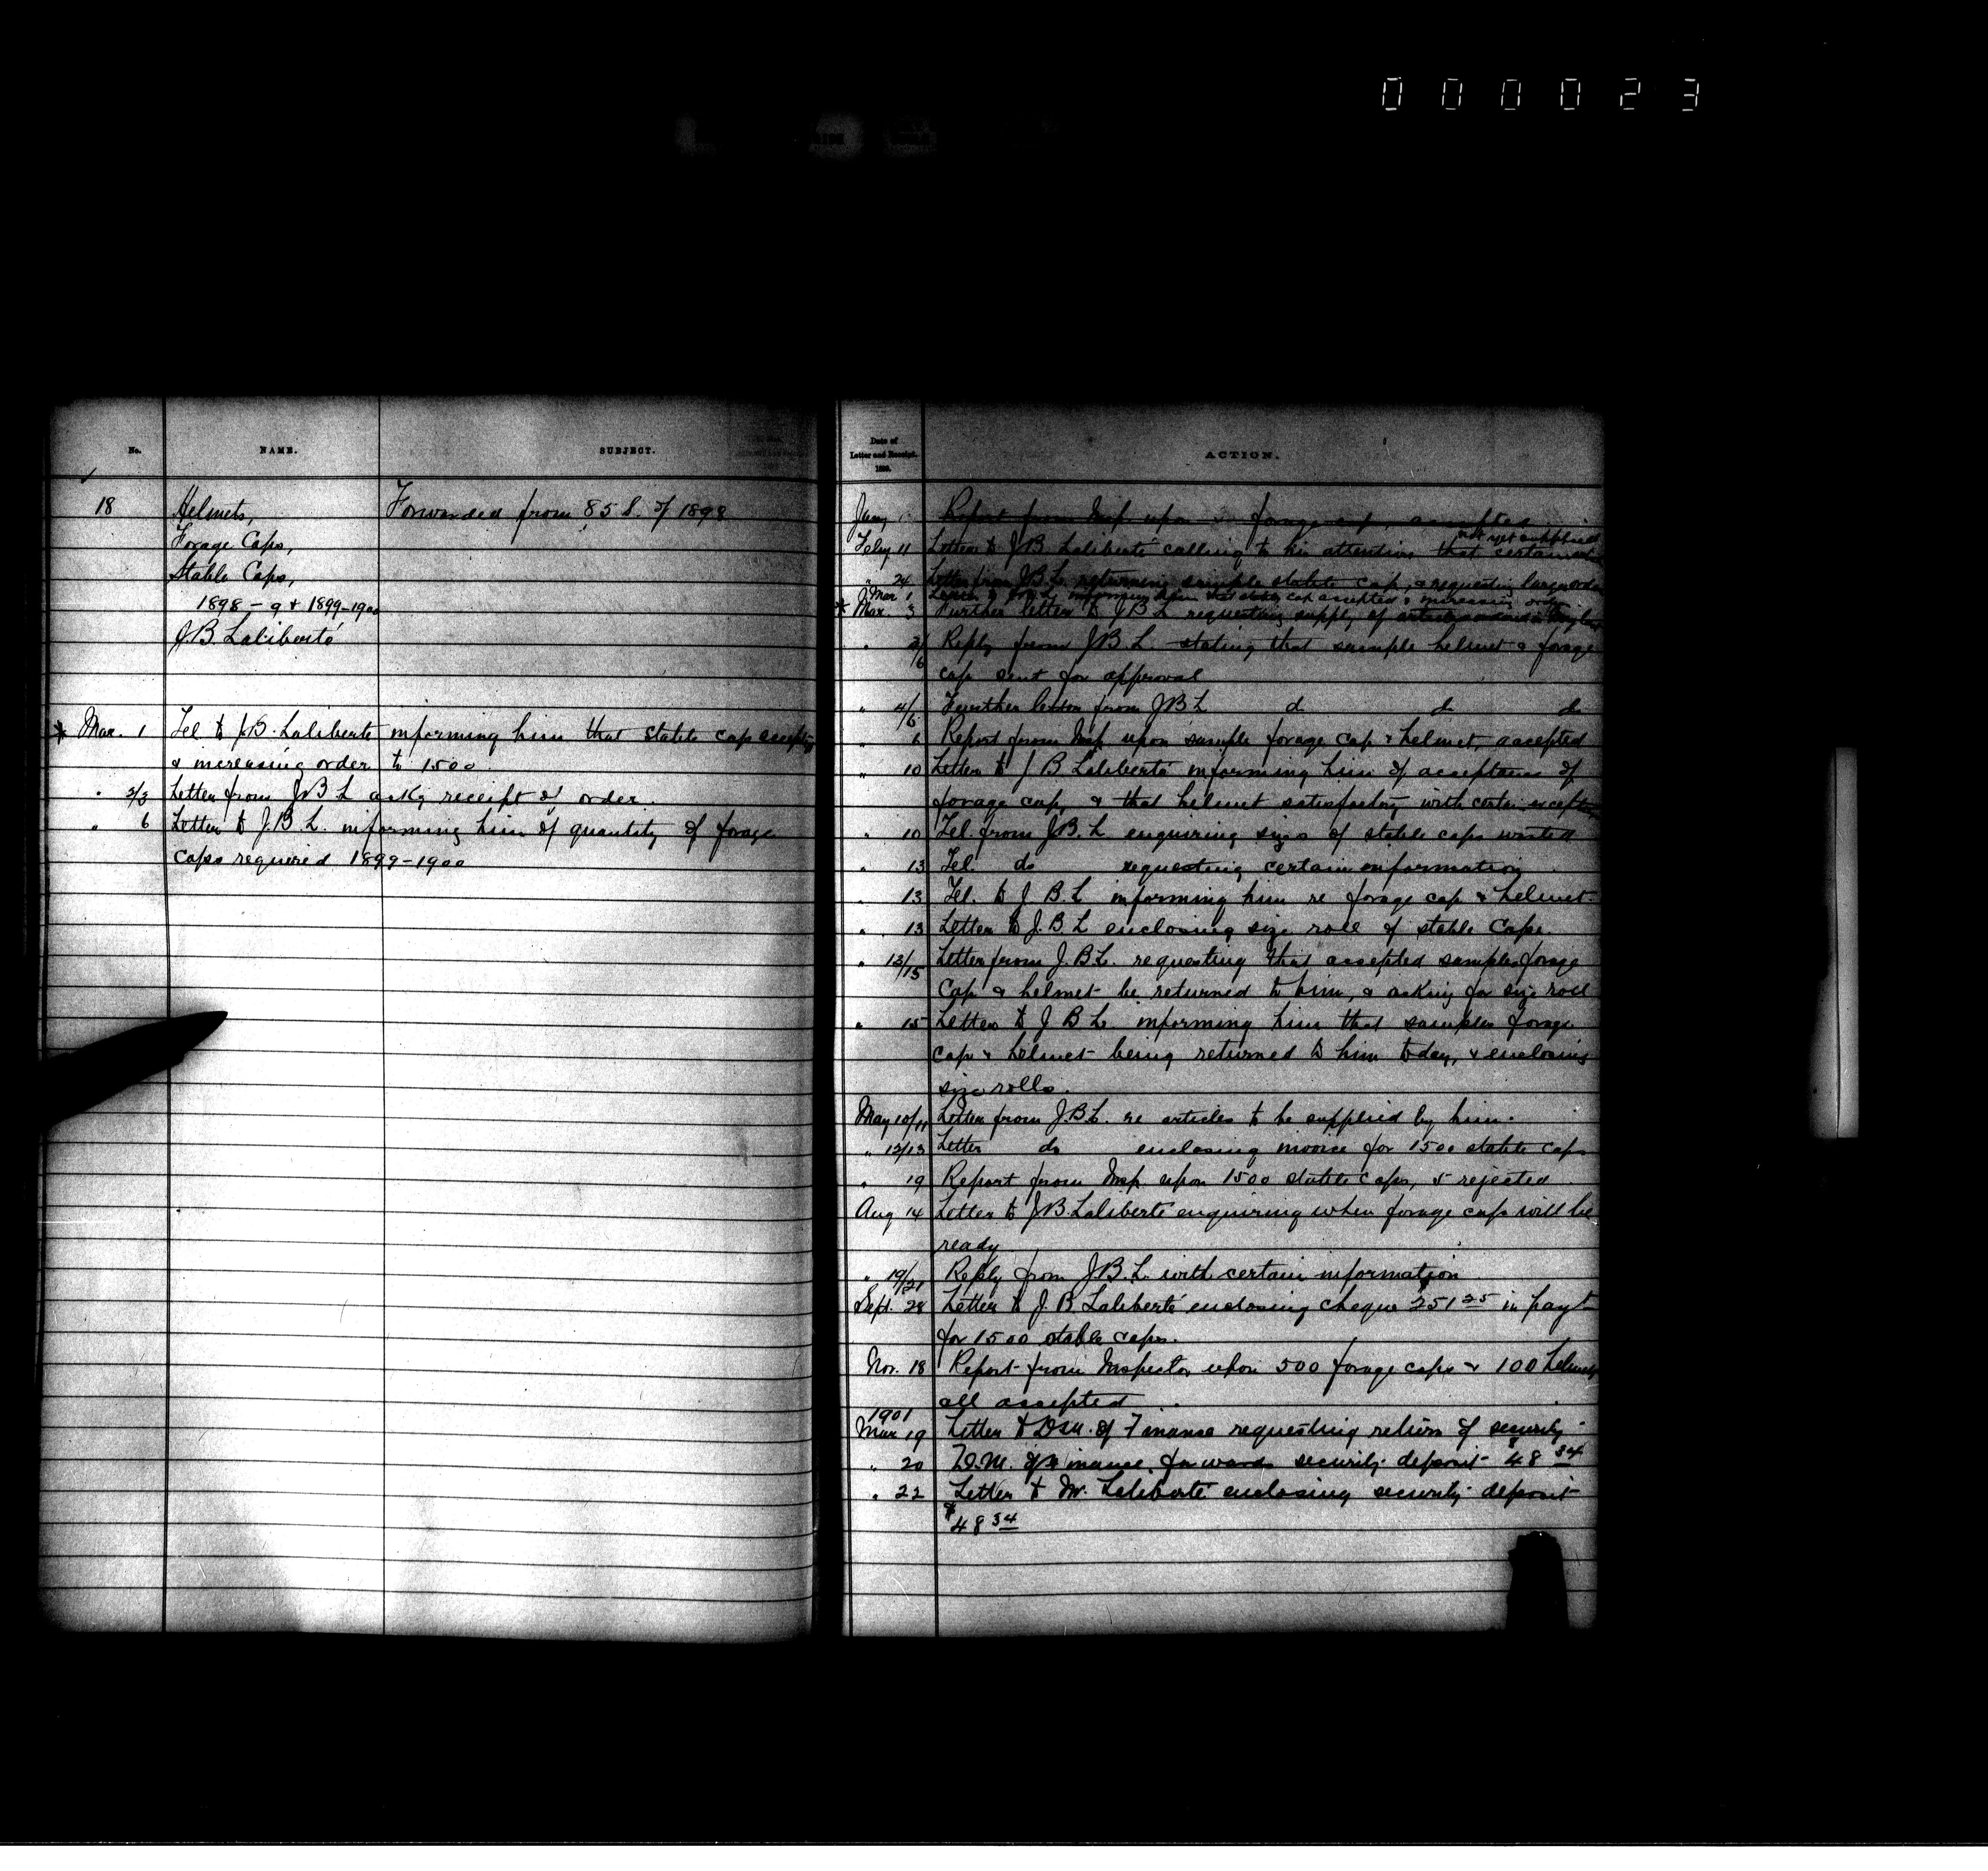 000023
No. NAME. SUBJECT.
18 Helmets, Forwarded from 85 S. of 1898
Forage Caps,
Stable Caps,
1898-9 & 1899-1900
J.B. Laliberté
* Mar. 1 Tel to J.B. Laliberte informing him that stable cap accepted
& increasing order to 1500
" 2/3 Letter from J B L ack'g receipt of order.
" 6 Letter to J.B L. informing him of quantity of forage
caps required 1899-1900
Date of
Letter and Receipt.
1899.
ACTION.
Jany Report from Insp upon forage cap, accepted
not yet supplied
Feby 11 Letter to J B Laliberté calling to his attention that certain
" 24 Letter from J B L. returning sample stable cap, & requesting larger order
Mar 1 informing him that stable cap accepted & increasing order
* Mar. 3 Further letter to J B L requesting supply of articles
" 3/6 Reply from J B L. stating that sample helmet & forage
cap sent for approval
" 4/6 Further letter from J B L do do do
" 6 Report from Insp upon sample forage cap & helmet, accepted
" 10 Letter to J B Laliberté informing him of acceptance of
forage cap, & that helmet satisfactory with certain exceptions
" 10 Tel. from J.B.L enquiring sizes of stable caps wanted
" 13 Tel. do requesting certain information
" 13 Tel. to J B. L informing him re forage cap & helmet.
" 13 Letter to J.B.L enclosing size roll of stable Caps
" 13/15 Letter from J.B L. requesting that accepted samples forage
Cap & helmet be returned to him, & asking for size roll
" 15 Letter to J B L. informing him that samples forage
cap & helmet being returned to him today, & enclosing
size rolls.
May 10/11 Letter from J.B.L. re articles to be supplied by him.
" 12/13 Letter do enclosing invoice for 1500 stable caps
" 19 Report from Insp. upon 1500 stable caps, 5 rejected
Aug 14 Letter to J B. Laliberté enquiring when forage caps will be
ready
" 19/21 Reply from J B. L. with certain information
Sept. 28 Letter to J. B. Laliberté enclosing cheque $251 25 in payt
for 1500 stable caps.
Nov. 18 Report from Inspector upon 500 forage caps & 100 helmets
all accepted
1901
Mar 19 Letter to D.M. of Finance requesting return of security
" 20 D.M. of Finance forwards security deposit $48 34
" 22 Letter to Mr. Laliberté enclosing security deposit
$48 34